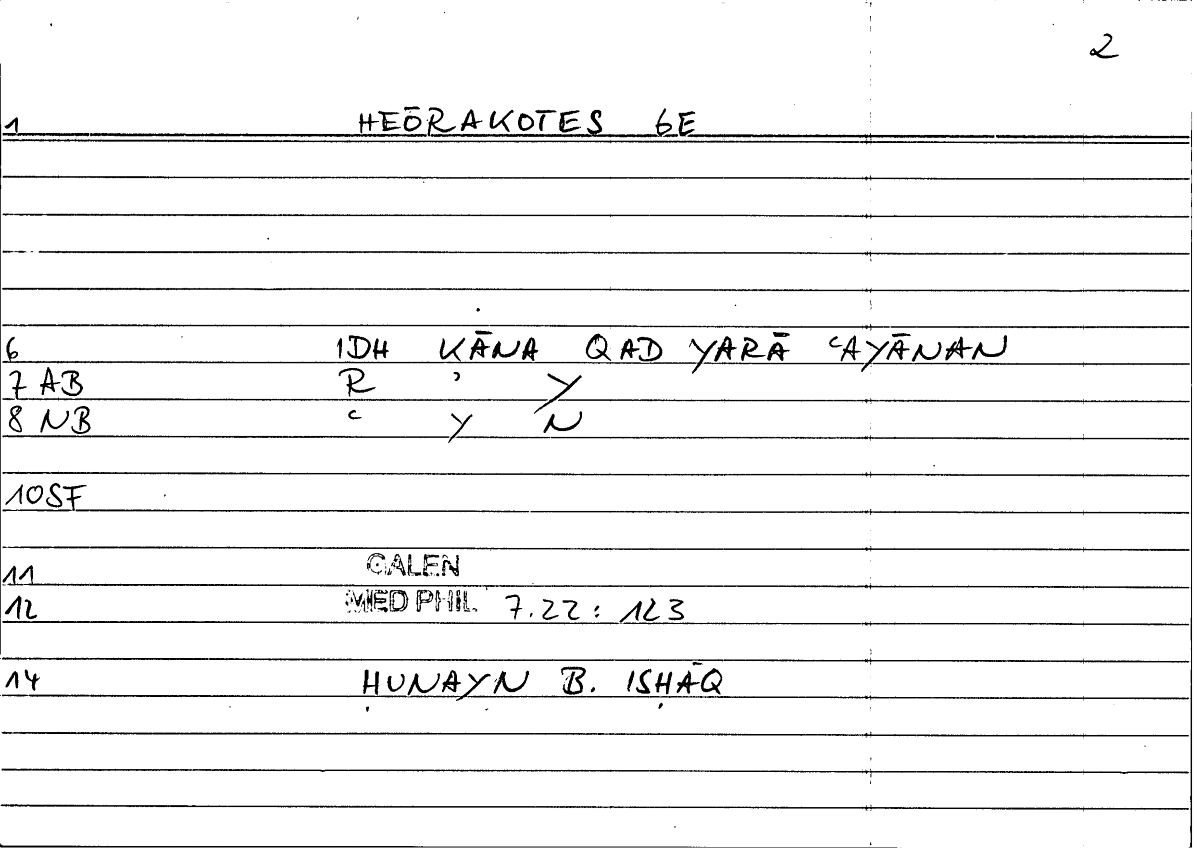 2
1 HEŌRAKOTES 6E
6 IDH KĀNA QAD YARĀ ʿAYĀNAN
7 AB R ʾ Y
8 NB ʿ Y N
10 SF
11 GALEN
12 MED PHIL 7.22: 123
14 ḤUNAYN B. ISḤĀQ